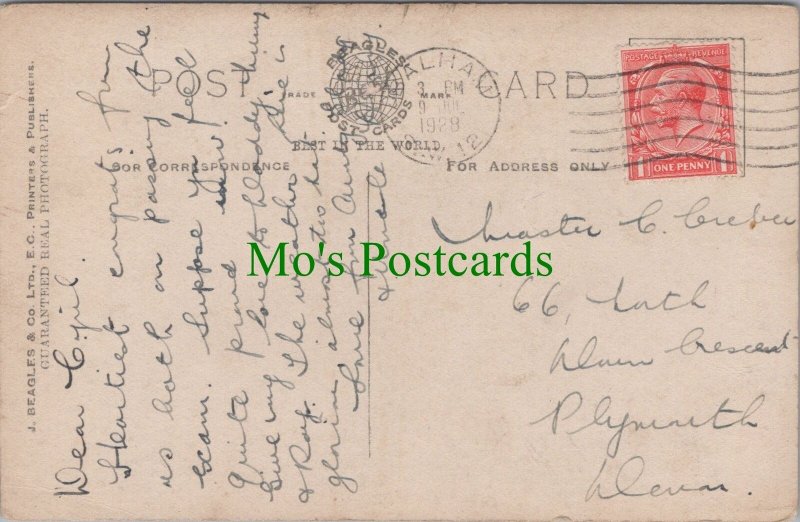 J. BEAGLES & Co. LTD., E.C., PRINTERS & PUBLISHERS.
GUARANTEED REAL PHOTOGRAPH.
POST CARD
TRADE MARK
BEAGLES
POST CARDS
BEST IN THE WORLD.
FOR CORRESPONDENCE
FOR ADDRESS ONLY
BALHAM
3 PM
9 JUL
1928
S.W.12
POSTAGE REVENUE
ONE PENNY
Dear Cyril.
Heartiest congrats. from
us both on passing the
exam. Suppose you feel
quite proud now!
Give my love to Mummy
& Ray. The weather here is
glorious almost too hot.
Love from Aunty
& Uncle
Master C. Creber
66, North
Down Crescent
Plymouth
Devon.
Mo's Postcards